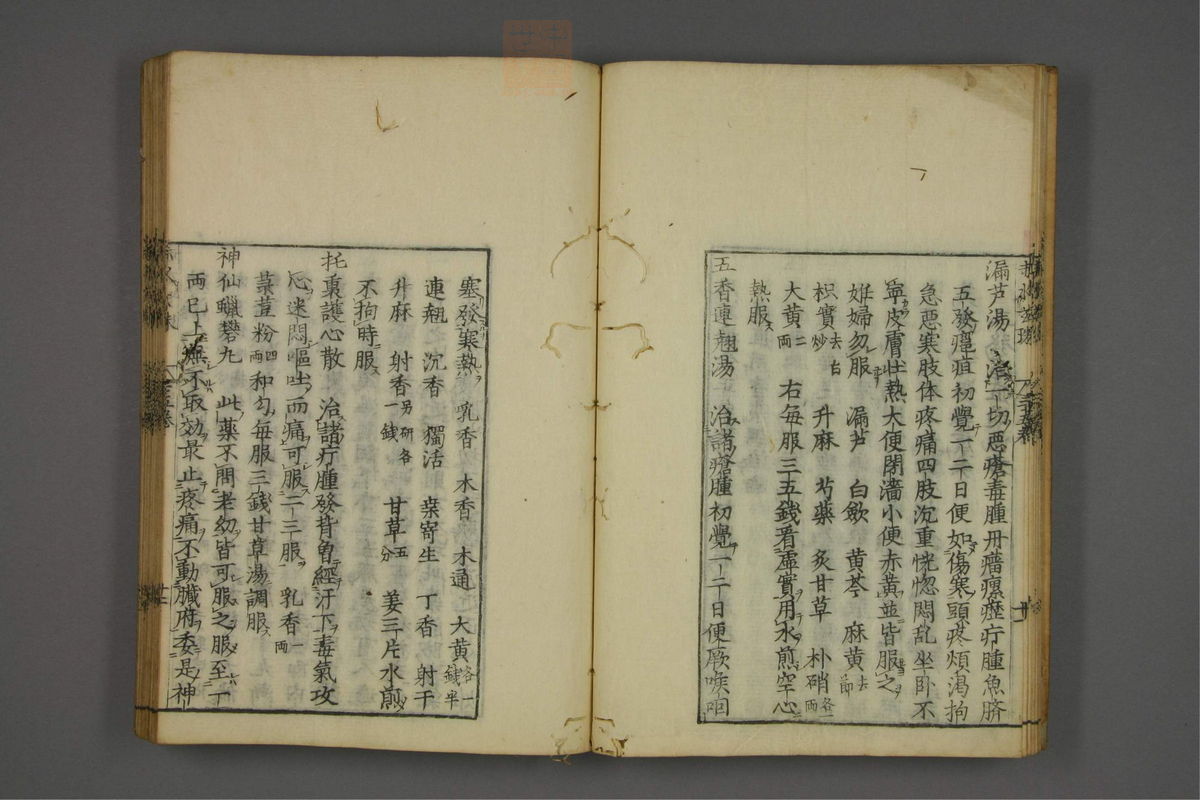 漏芦湯 治一切惡瘡毒腫丹瘤瘰癧疔腫魚臍
五發癰疽初覺一二日便如傷寒頭疼煩渇拘
急惡寒肢体疼痛四肢沉重恍惚悶乱坐卧不
寧皮膚壮熱大便閉濇小便赤黄並皆服之
妊婦勿服 漏芦 白歛 黄芩 麻黄去節
枳實去白炒 升麻 芍藥 炙甘草 朴硝各一兩
大黄二兩 右毎服三五錢看虛實用水煎空心
熱服
五香連翹湯 治諸瘡腫初覺一二日便厥喉咽
塞發寒熱 乳香 木香 木通 大黄各一錢半
連翹 沉香 獨活 桒寄生 丁香 射干
升麻 射香另研各一錢 甘草五分 姜三片水煎
不拘時服
托裏護心散 治諸疔腫發背曽經汗下毒氣攻
心迷悶嘔吐而痛可服二三服 乳香一兩
菉荳粉四兩 和匀毎服三錢甘草湯調服
神仙蠟礬丸 此藥不問老幼皆可服之服至一
兩已上無不取効最止疼痛不動臟府委是神